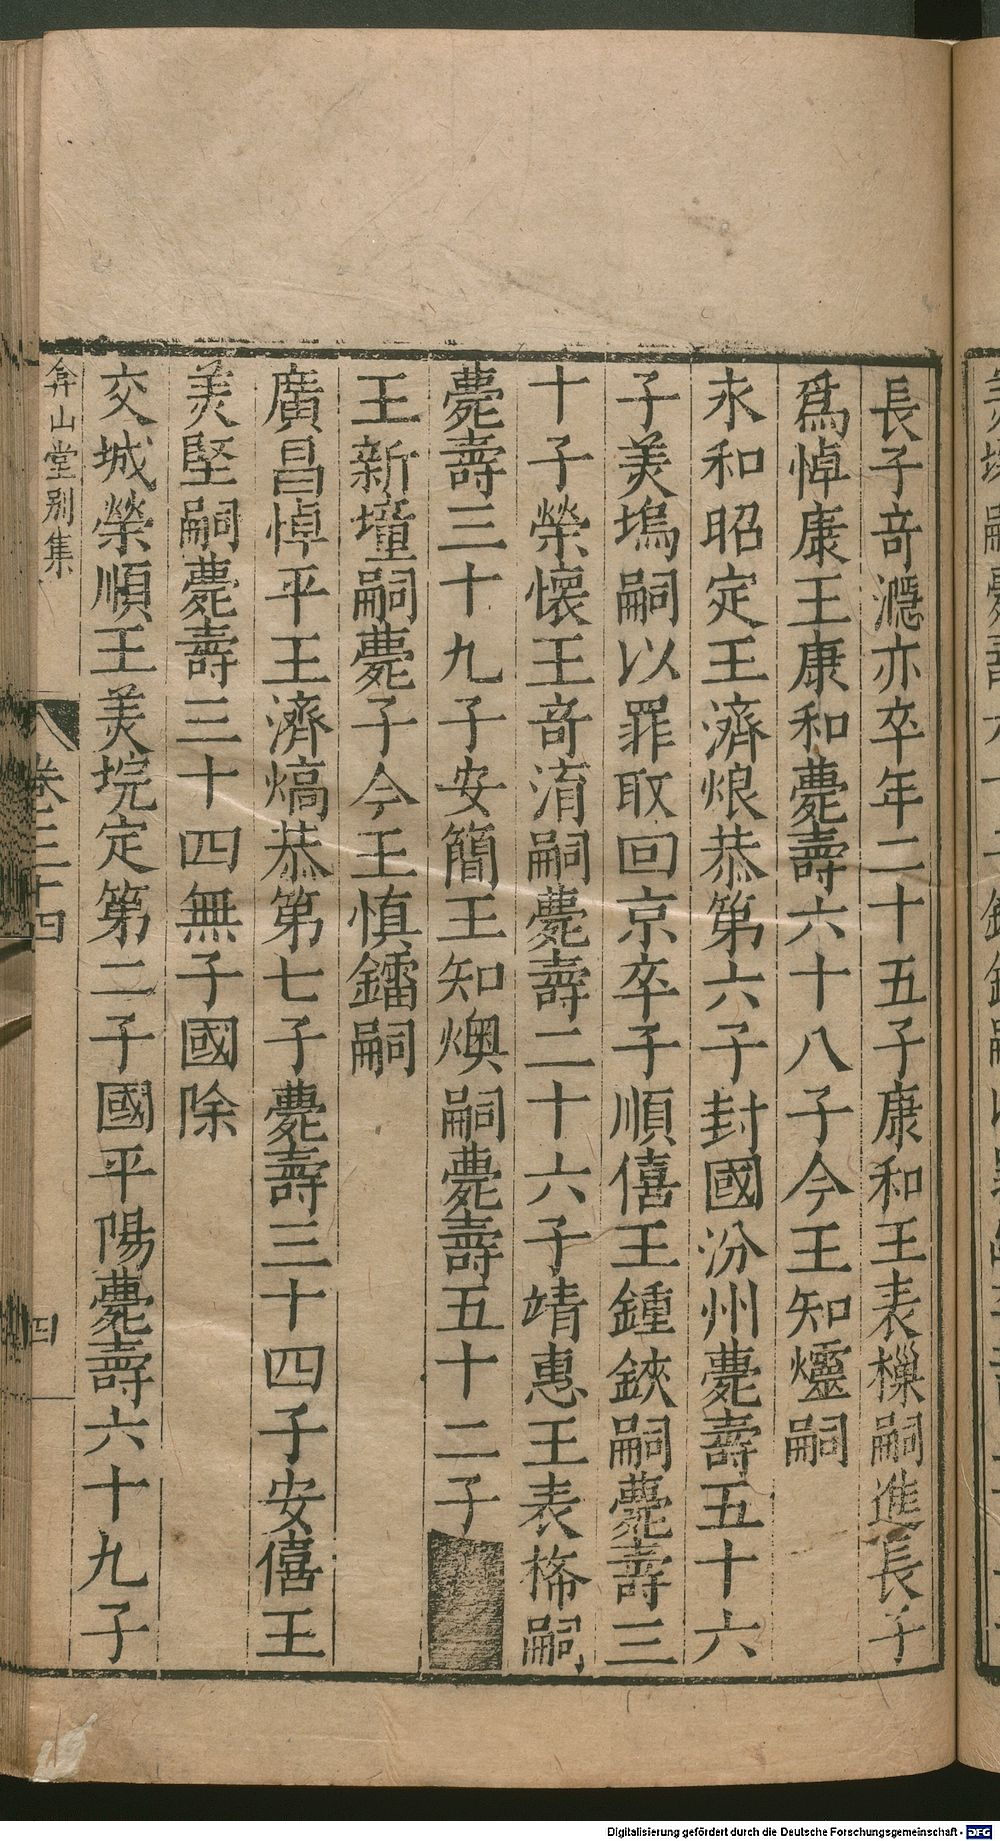 長子奇濦亦卒年二十五子康和王表樻嗣進長子
爲悼康王康和薨壽六十八子今王知㸌嗣
永和昭定王濟烺恭第六子封國汾州薨壽五十六
子美塢嗣以罪取回京卒子順僖王鍾鋏嗣薨壽三
十子榮懷王奇淯嗣薨壽二十六子靖惠王表㭸嗣
薨壽三十九子安簡王知燠嗣薨壽五十二子
王新墥嗣薨子今王慎鐳嗣
廣昌悼平王濟熇恭第七子薨壽三十四子安僖王
美堅嗣薨壽三十四無子國除
交城榮順王美垸定第二子國平陽薨壽六十九子
弇山堂别集
卷三十四
四
Digitalisierung gefördert durch die Deutsche Forschungsgemeinschaft - DFG